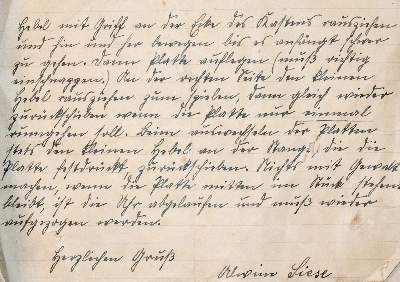 Hebel mit Griff an der Ecke des Kastens rausziehen
und hin und her bewegen bis es anfängt schwer
zu gehen. Dann Platte auflegen (muß richtig
einschnappen.) An der rechten Seite den kleinen
Hebel rausziehen zum spielen, dann gleich wieder
zurückschieben wenn die Platte nur einmal
rumgehen soll. Beim auswechseln der Platten
stets den kleinen Hebel an der Stange, die die
Platte festdrückt zurückschieben. Nichts mit Gewalt
machen, wenn die Platte mitten im Stück stehen
bleibt, ist die Uhr abgelaufen und muß wieder
aufgezogen werden.
Herzlichen Gruß
Alwine Siese